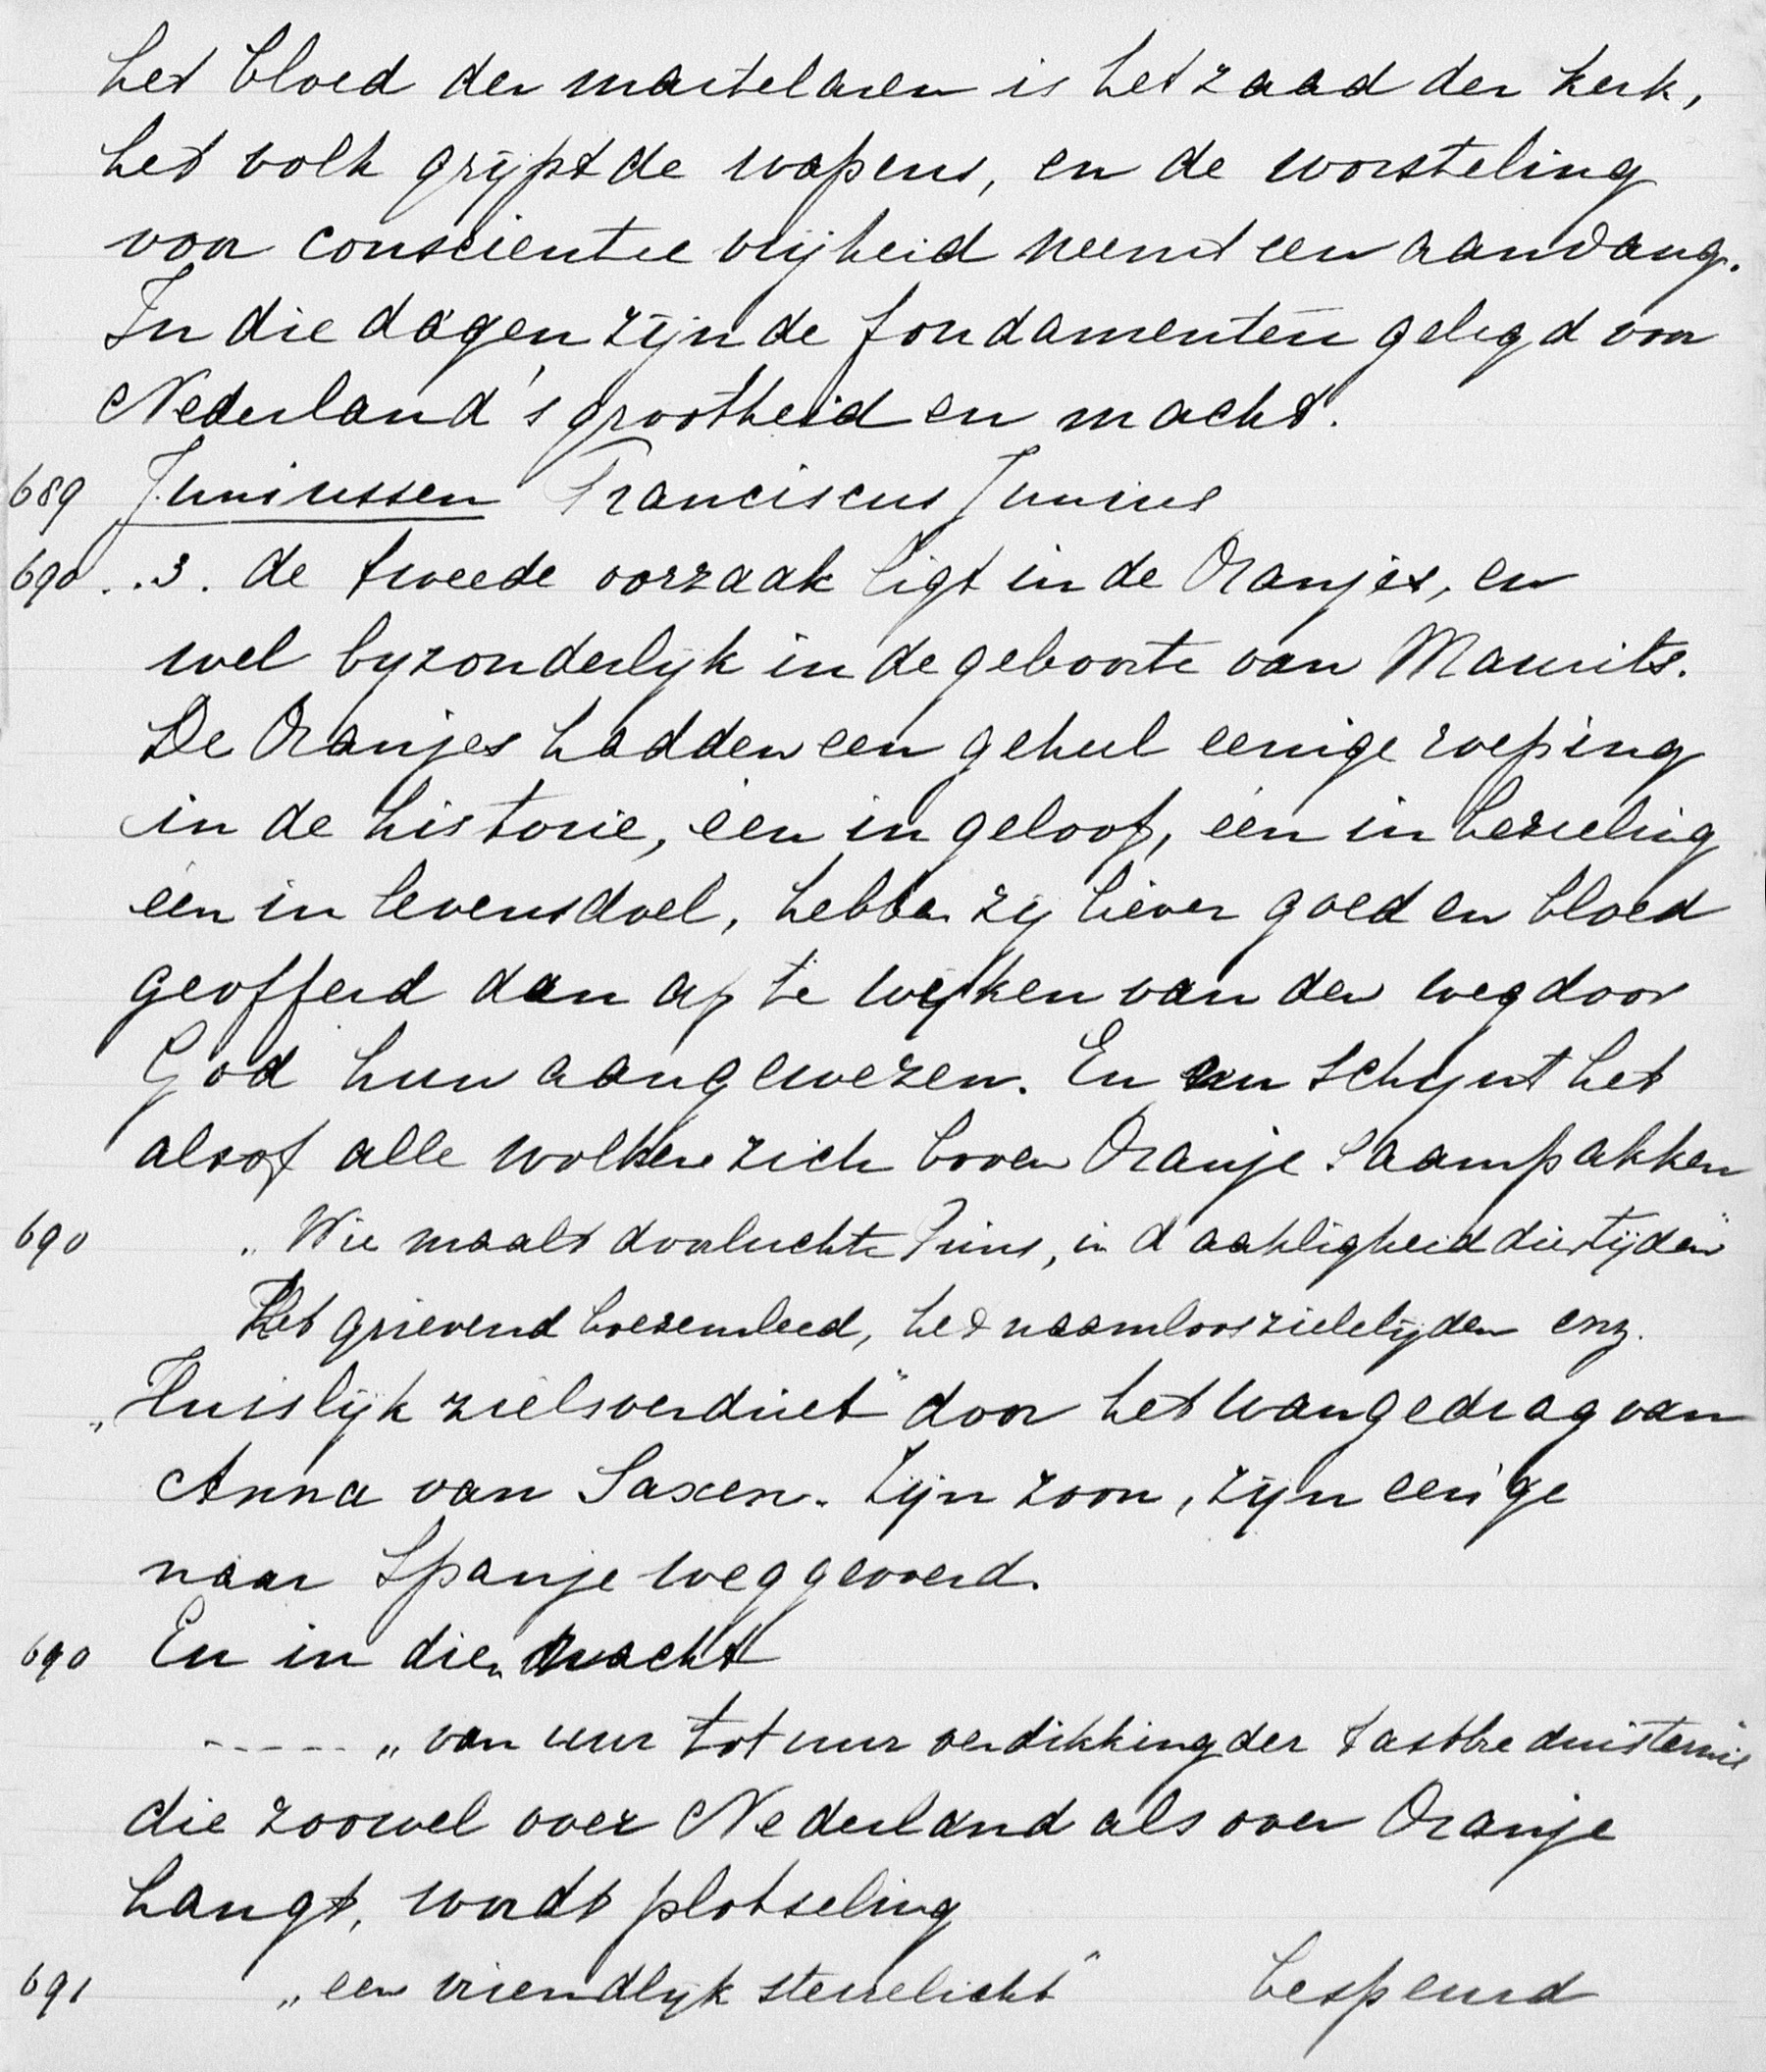 het bloed der martelaren is het zaad der kerk,
het volk grijpt de wapens, en de worsteling
voor conscientie vrijheid neemt een aanvang.
In die dagen zijn de fondamenten gelegd voor
Nederland's grootheid en macht.
689 Juniussen Franciscus Junius
690 . . 3. de tweede oorzaak ligt in de Oranjes, en
wel byzonderlijk in de geboorte van Maurits.
De Oranjes hadden een geheel eenige roeping
in de historie, één in geloof, één in bezieling
één in levensdoel, hebben zij liever goed en bloed
geofferd dan af te wijken van den weg door
God hun aangewezen. En nu schijnt het
alsof alle wolken zich boven Oranje saampakken
690 „Wie maalt doorluchte Prins, in d'aakligheid dier tijden"
Het grievend boezemleed, het naamloos zielelijden enz.
„Huislijk zielsverdriet" door het wangedrag van
Anna van Saxen. Zijn zoon, zijn een'ge
naar Spanje weggevoerd.
690 En in dien nacht
----- „van uur tot uur verdikking der tastbre duisternis
die zoowel over Nederland als over Oranje
hangt, wordt plotseling
691 „een vriendlijk sterrelicht" bespeurd